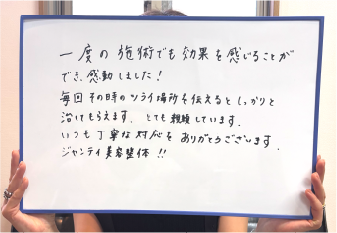 一度の施術でも効果を感じることが
でき、感動しました！
毎回その時のツライ場所を伝えるとしっかりと
治してもらえます。とても親頼しています。
いつも丁寧な対応をありがとうございます。
ジャンティ美容整体!!